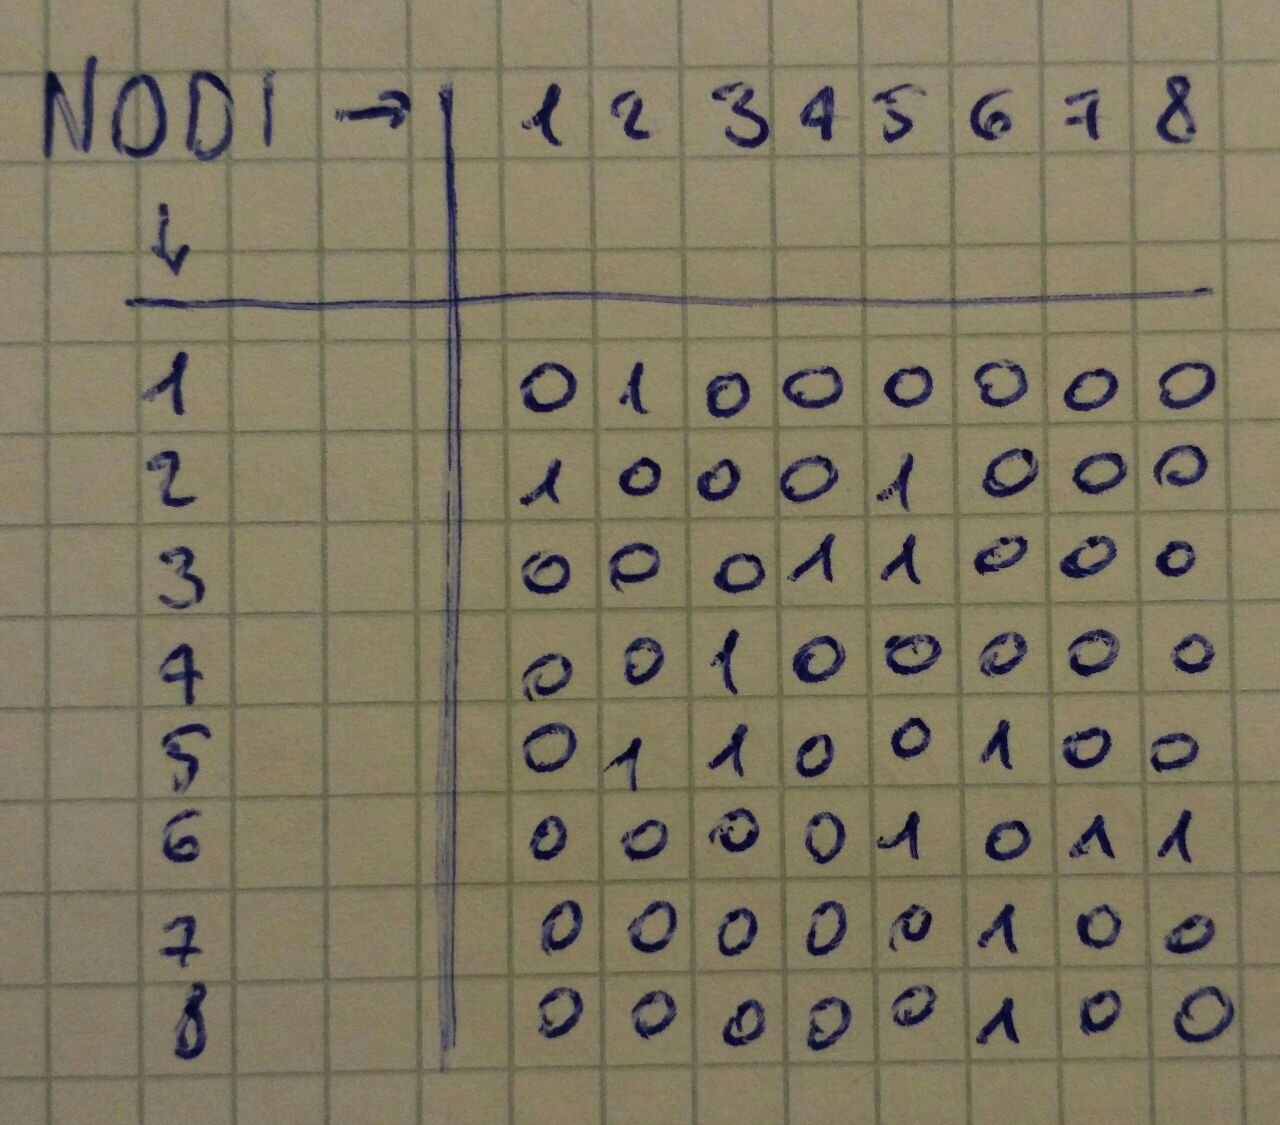 NODI → 1 2 3 4 5 6 7 8
↓
1 0 1 0 0 0 0 0 0
2 1 0 0 0 1 0 0 0
3 0 0 0 1 1 0 0 0
4 0 0 1 0 0 0 0 0
5 0 1 1 0 0 1 0 0
6 0 0 0 0 1 0 1 1
7 0 0 0 0 0 1 0 0
8 0 0 0 0 0 1 0 0